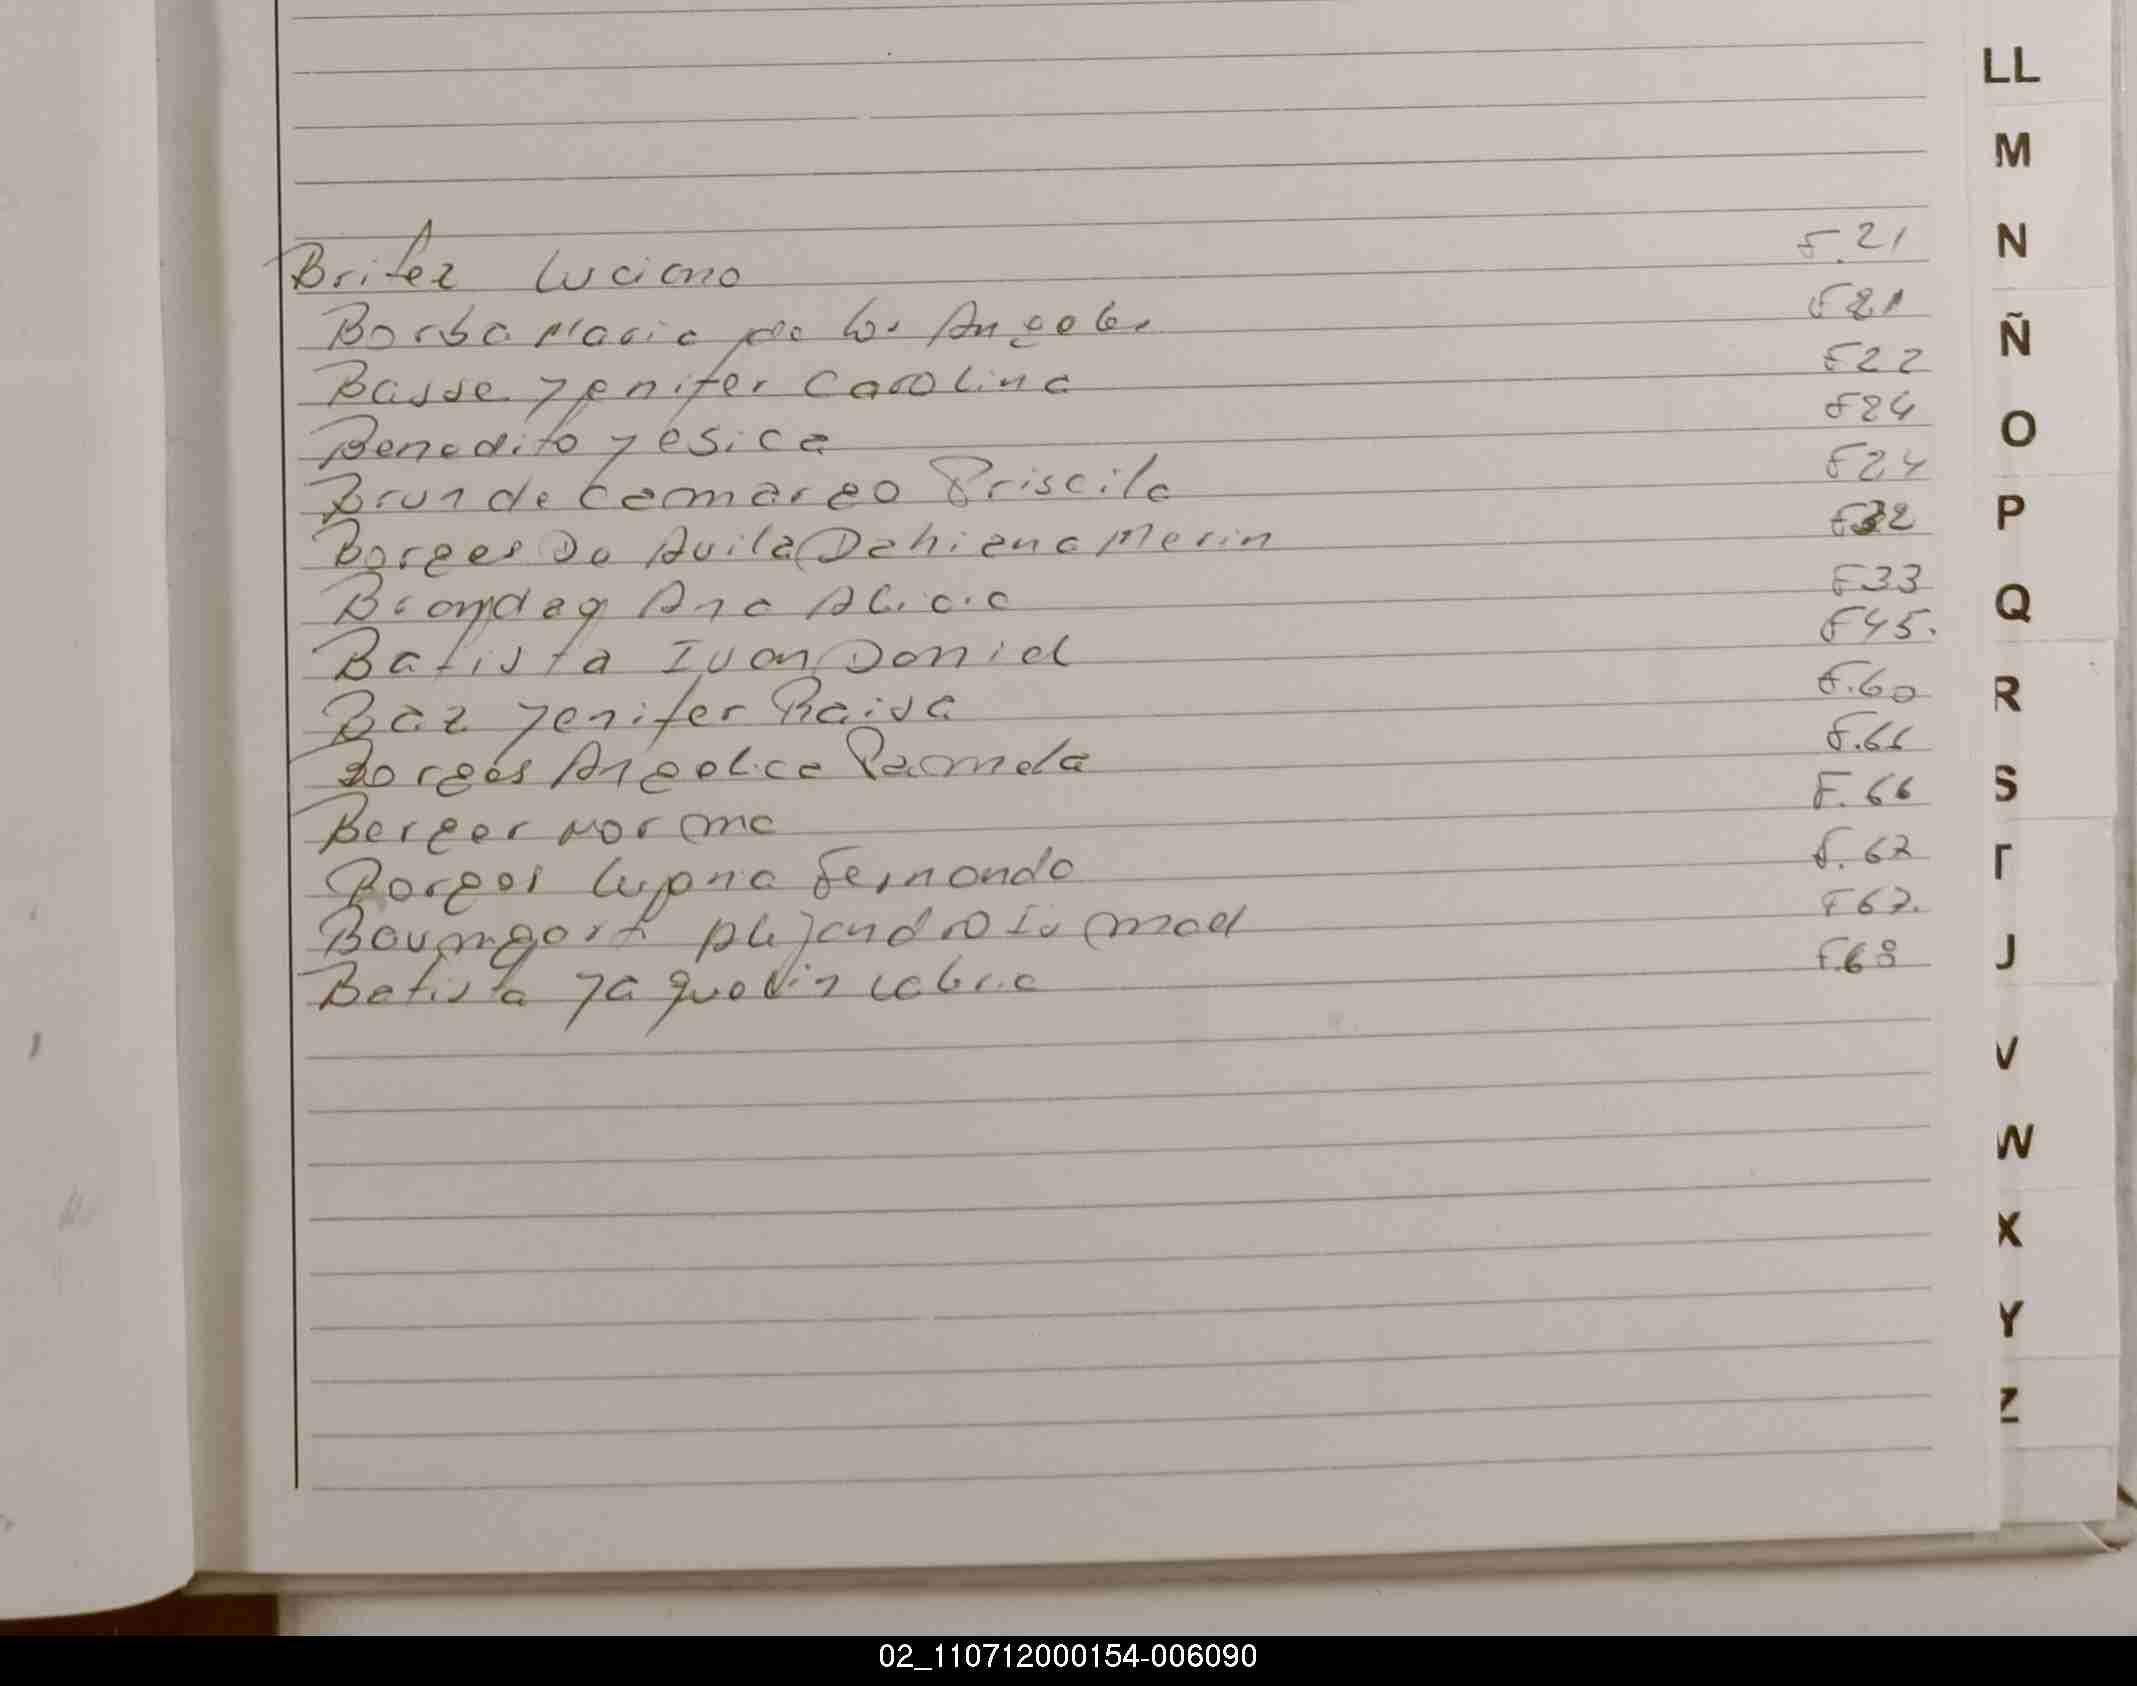 Britez Luciano F.21
Borba Maria de los Angeles F21
Basse Yenifer Carolina F22
Benedito Yesica F24
Brun de Camargo Priscila F24
Borges Da Avila Dahiana Merin F32
Ana Alicia F33
Batista Ivan Daniel F45.
Baz Yenifer Raisa F.60
Borges Angelica Pamela F.66
Berger Norma F. 66
Borges Luana Fernando F. 67
Baumgart Alejandro Ismael F67.
Batista Yaquelin F.68
LL
M
N
Ñ
O
P
Q
R
S
T
J
V
W
X
Y
Z
02_110712000154-006090